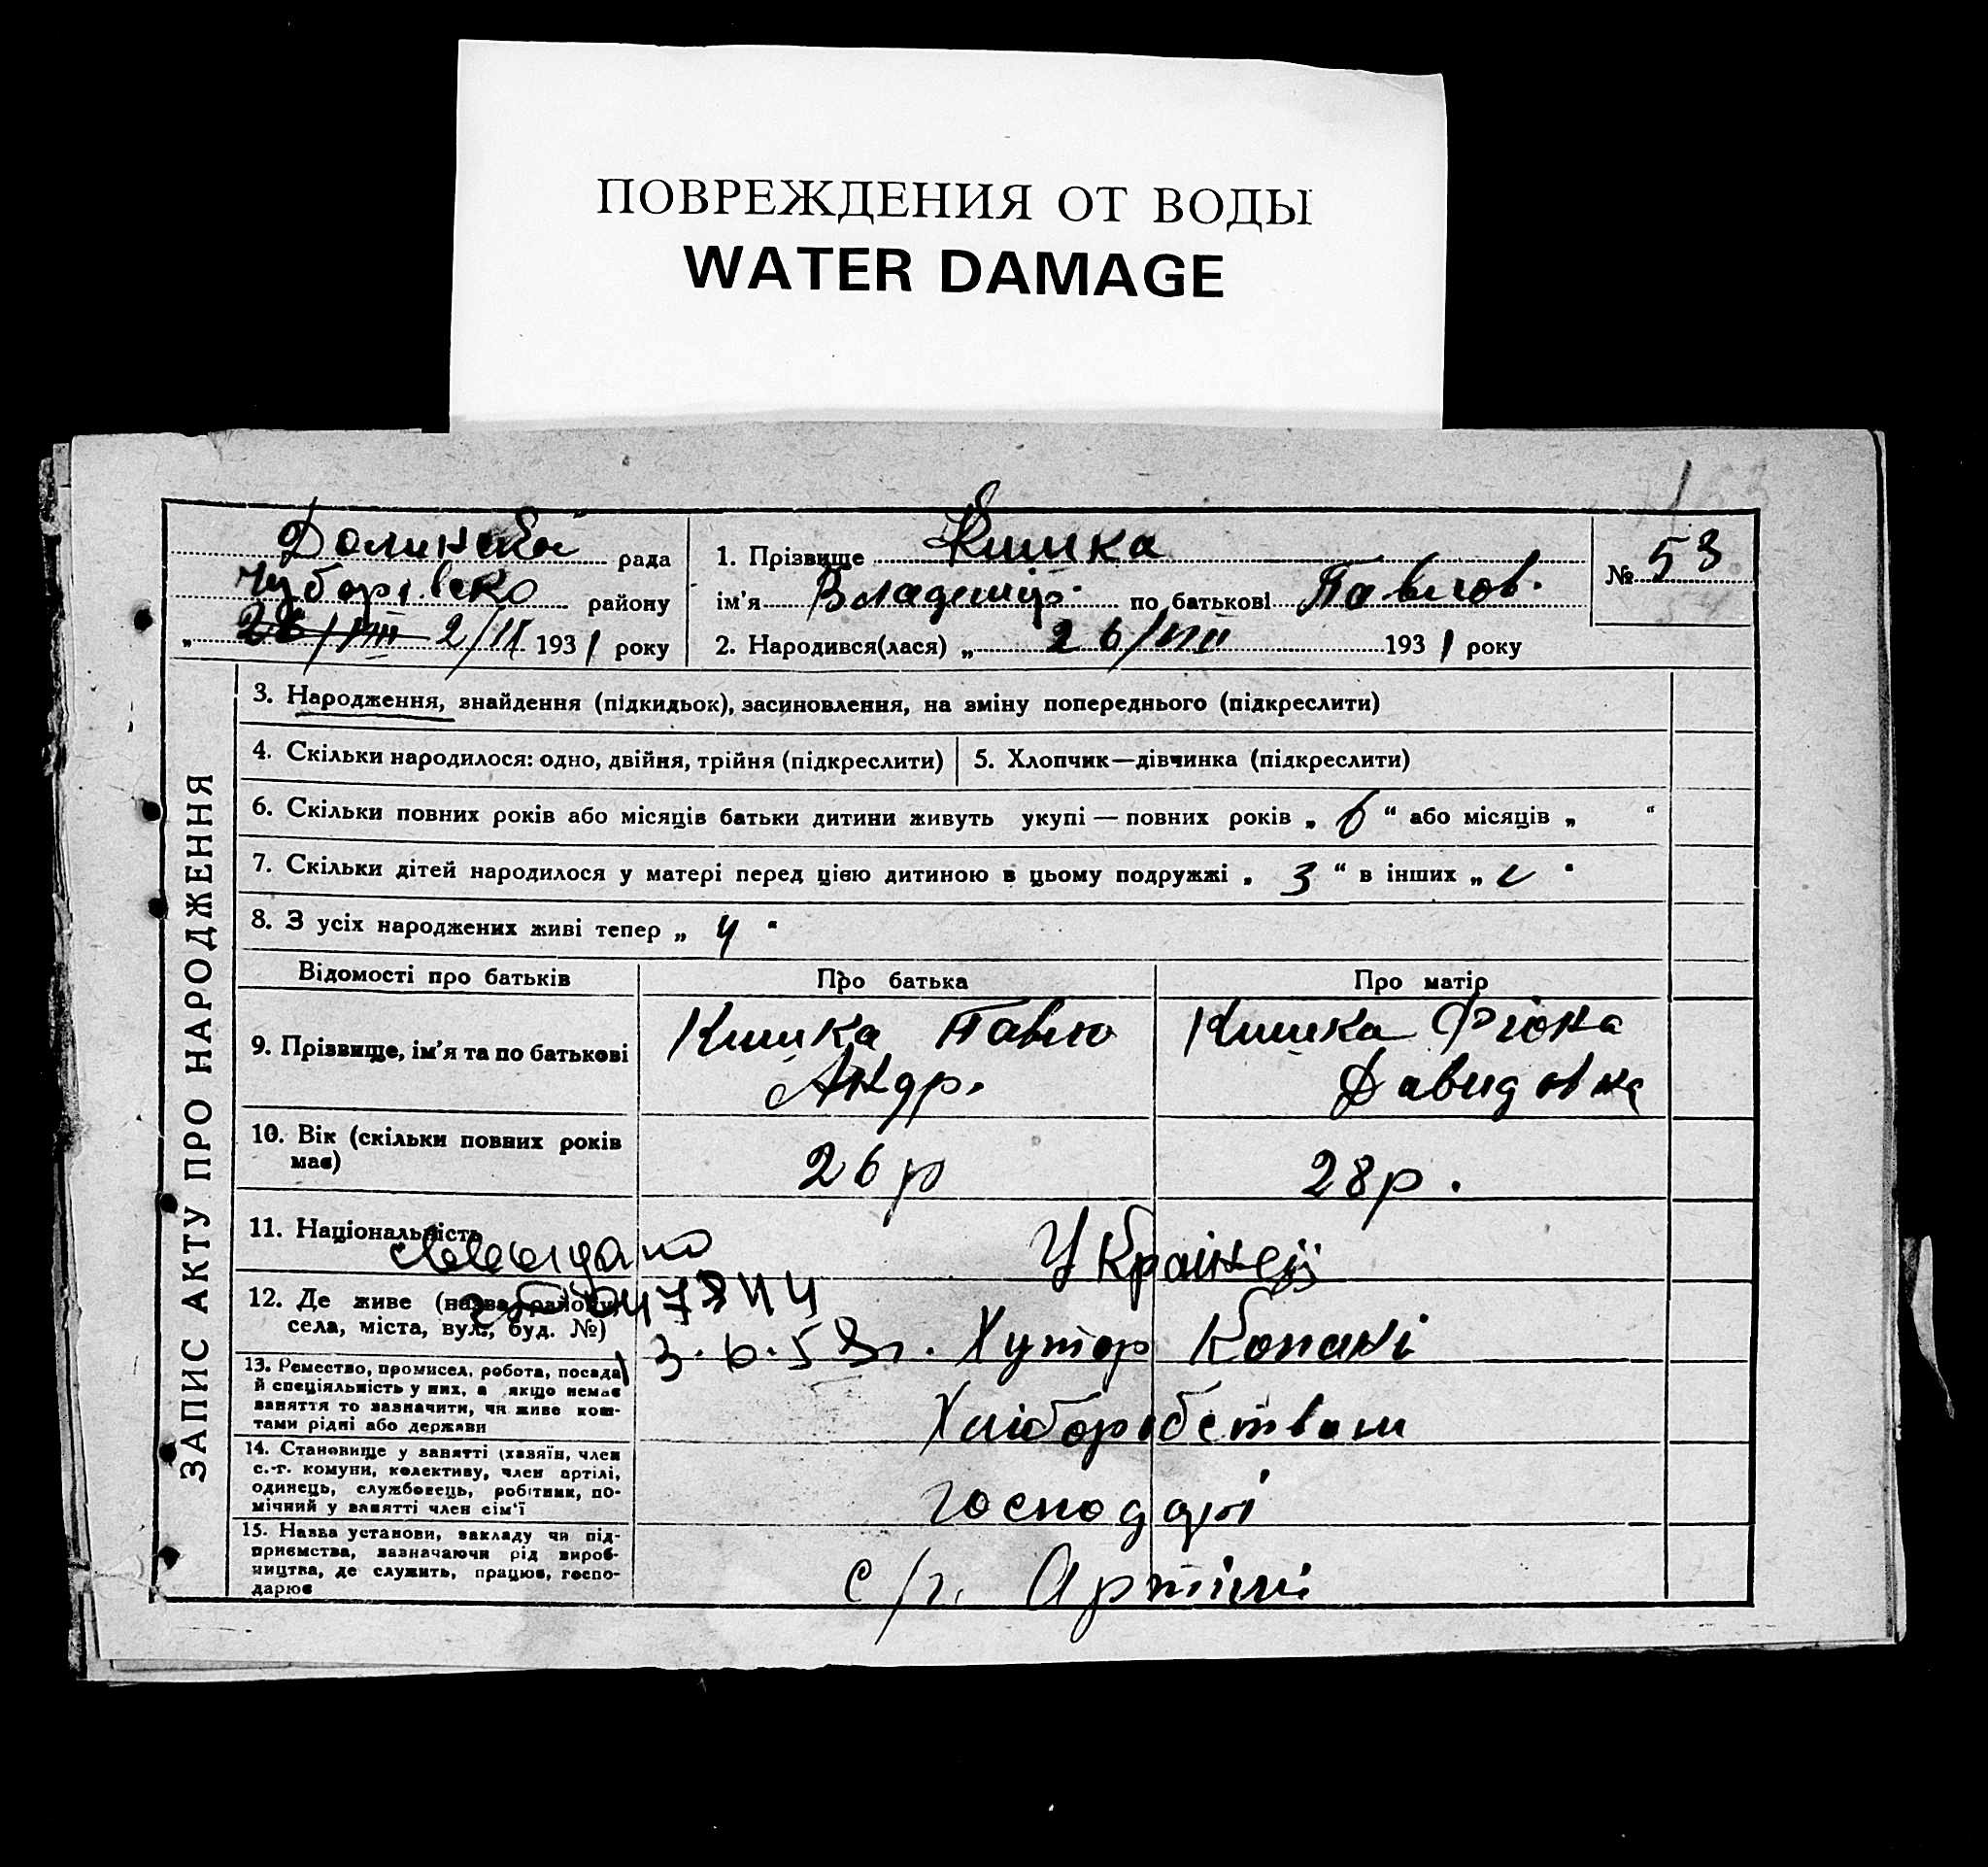 ПОВРЕЖДЕНИЯ ОТ ВОДЫ
WATER DAMAGE
рада 1. Прізвище Кишка № 53
Чубарівско району ім'я Владемір по батькові Павлов.
„ 26/VIII 2/IX 1931 року 2. Народився(лася) „ 26/VIII 1931 року
ЗАПИС АКТУ ПРО НАРОДЖЕННЯ
3. Народження, знайдення (підкидьок), засиновлення, на зміну попереднього (підкреслити)
4. Скільки народилося: одно, двійня, трійня (підкреслити) 5. Хлопчик—дівчинка (підкреслити)
6. Скільки повних років або місяців батьки дитини живуть укупі — повних років „ 6 “ або місяців „ “
7. Скільки дітей народилося у матері перед цією дитиною в цьому подружжі „ 3 “ в інших „ “
8. З усіх народжених живі тепер „ 4 “
Відомості про батьків Про батька Про матір
9. Прізвище, ім'я та по батькові Кишка Павло Кишка Фіона
Андр. Давидовна
10. Вік (скільки повних років 26 р 28 р.
має)
11. Національність Українці
12. Де живе (назва району,
села, міста, вул., буд. №) 3.6.58г. Хутор Копані
13. Ремество, промисел, робота, посада
й спеціяльність у них, а якщо немає
заняття то зазначити, чи живе кош-
тами рідні або держави
Хліборобством
14. Становище у занятті (хазяїн, член
с.-г. комуни, колективу, член артілі,
одинець, службовець, робітник, по-
мічний у занятті член сім'ї
господарі
15. Назва установи, закладу чи під-
приємства, зазначаючи рід вироб-
ництва, де служить, працює, госпо-
дарює
с/г. Артілі